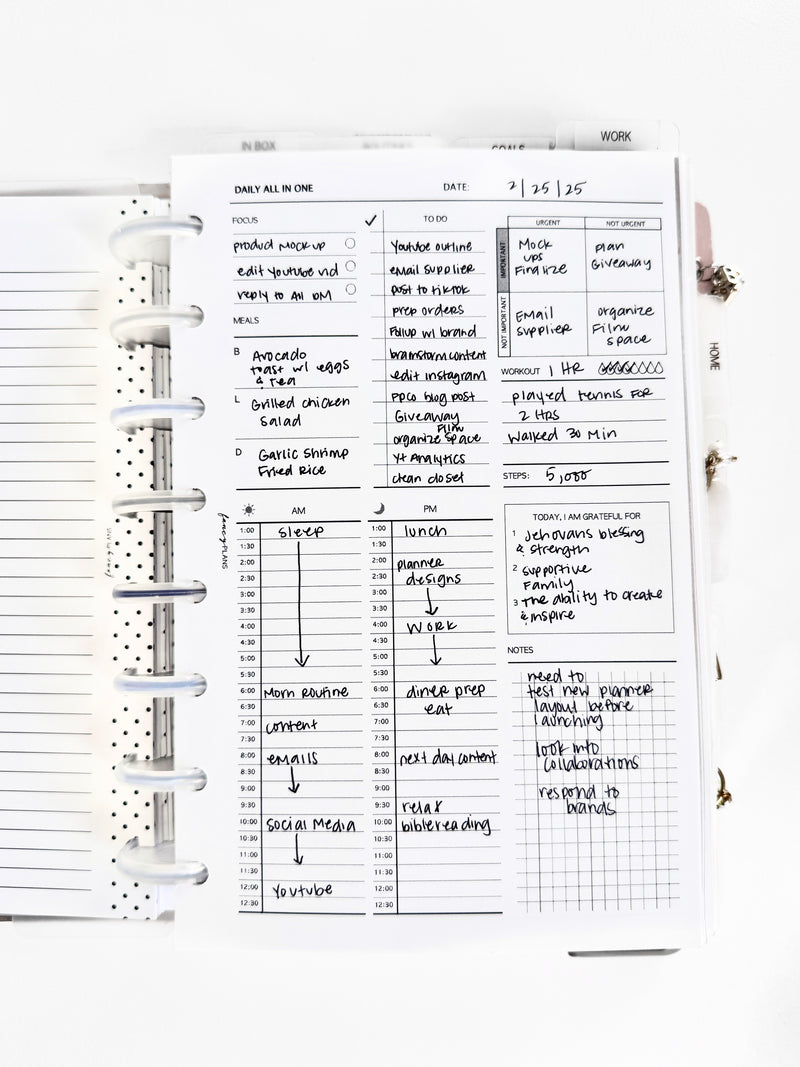 IN BOX
GOALS
WORK
HOME
DAILY ALL IN ONE
DATE: 2/25/25
FOCUS
product mock up
edit Youtube vid
reply to All DM
MEALS
B Avocado
toast w/ eggs
& tea
L Grilled chicken
Salad
D Garlic Shrimp
Fried Rice
TO DO
Youtube outline
email supplier
post to tiktok
prep orders
Follup w/ brand
brainstorm content
edit instagram
PPCO blog post
Giveaway
Film
organize space
Yt Analytics
clean closet
URGENT
NOT URGENT
IMPORTANT
Mock
ups
Finalize
plan
Giveaway
NOT IMPORTANT
Email
supplier
organize
Film
space
WORKOUT 1 HR
played tennis for
2 HRS
Walked 30 Min
STEPS: 5,000
fancyPLANS
AM
1:00 sleep
1:30
2:00
2:30
3:00
3:30
4:00
4:30
5:00
5:30
6:00 Morn routine
6:30
7:00 content
7:30
8:00 emails
8:30
9:00
9:30
10:00 Social Media
10:30
11:00
11:30
12:00 Youtube
12:30
PM
1:00 lunch
1:30
2:00 planner
2:30 designs
3:00
3:30
4:00 WORK
4:30
5:00
5:30
6:00 diner prep
6:30 eat
7:00
7:30
8:00 next day content
8:30
9:00
9:30 relax
10:00 bible reading
10:30
11:00
11:30
12:00
12:30
TODAY, I AM GRATEFUL FOR
1 Jehovahs blessing
& strength
2 supportive
Family
3 The ability to create
& inspire
NOTES
need to
test new planner
layout before
launching
look into
collaborations
respond to
brands